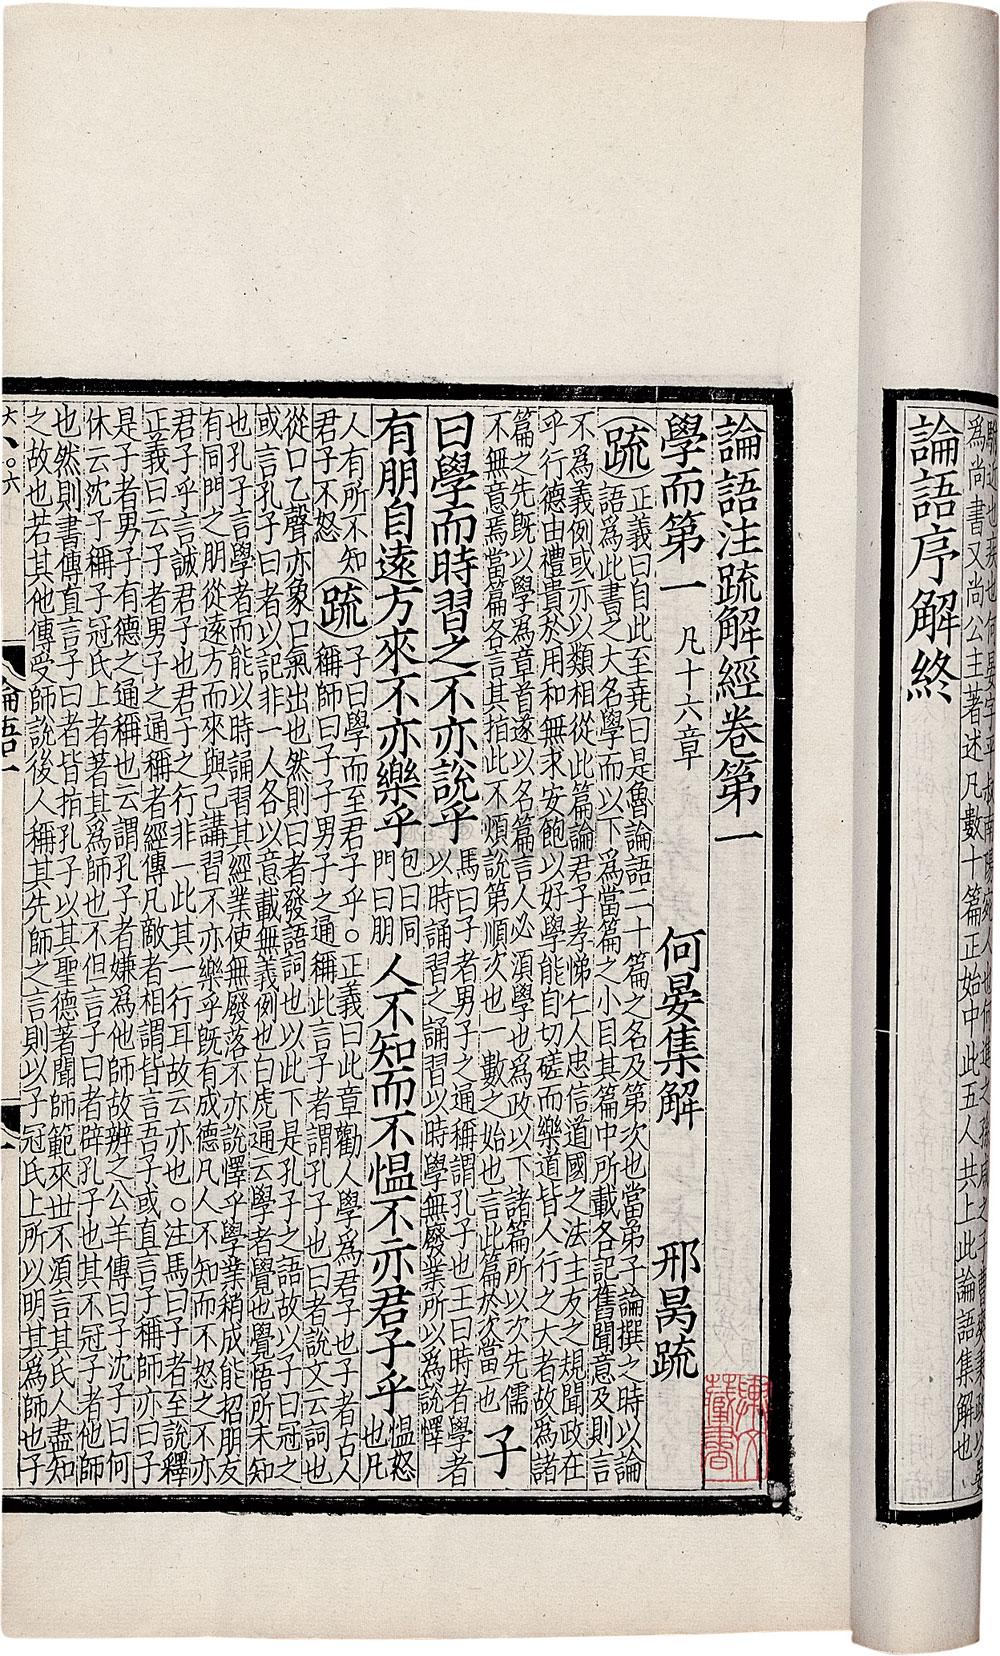 近也疾也何晏字平叔南陽宛人也何進之孫咸之子曹爽秉政以晏
爲尚書又尚公主著述凡數十篇正始中此五人共上此論語集解也
論語序解終
論語注疏解經卷第一
學而第一 凡十六章 何晏集解 邢昺疏
疏 正義曰自此至堯曰是魯論語二十篇之名及第次也當弟子論撰之時以論
語爲此書之大名學而以下爲當篇之小目其篇中所載各記舊聞意及則言
不爲義例或亦以類相從此篇論君子孝悌仁人忠信道國之法主友之規聞政在
乎行德由禮貴於用和無求安飽以好學能自切磋而樂道皆人行之大者故爲諸
篇之先既以學爲章首遂以名篇言人必須學也爲政以下諸篇所以次先儒
不無意焉當篇各言其指此不煩說第順次也一數之始也言此篇於次當一也 子
曰學而時習之不亦說乎 馬曰子者男子之通稱謂孔子也王曰時者學者
以時誦習之誦習以時學無廢業所以爲說懌
有朋自遠方來不亦樂乎 包曰同門曰朋 人不知而不慍不亦君子乎 慍怒也凡
人有所不知君子不怒 疏 子曰學而至君子乎。正義曰此章勸人學爲君子也子者古人
稱師曰子子男子之通稱此言子者謂孔子也曰者說文云詞也
從口乙聲亦象口氣出也然則曰者發語詞也以此下是孔子之語故以子曰冠之
或言孔子曰者以記非一人各以意載無義例也白虎通云學者覺也覺悟所未知
也孔子言學者而能以時誦習其經業使無廢落不亦說懌乎學業稍成能招朋友
有同門之朋從遠方而來與己講習不亦樂乎既有成德凡人不知而不怒之不亦
君子乎言誠君子也君子之行非一此其一行耳故云亦也。注馬曰子者至說釋
正義曰云子者男子之通稱者經傳凡敵者相謂皆言吾子或直言子稱師亦曰子
是子者男子有德之通稱也云謂孔子者嫌爲他師故辨之公羊傳曰子沈子曰何
休云沈子稱子冠氏上者著其爲師也不但言子曰者辟孔子也其不冠子者他師
也然則書傳直言子曰者皆指孔子以其聖德著聞師範來世不須言其氏人盡知
之故也若其他傳受師說後人稱其先師之言則以子冠氏上所以明其爲師也子
論語一